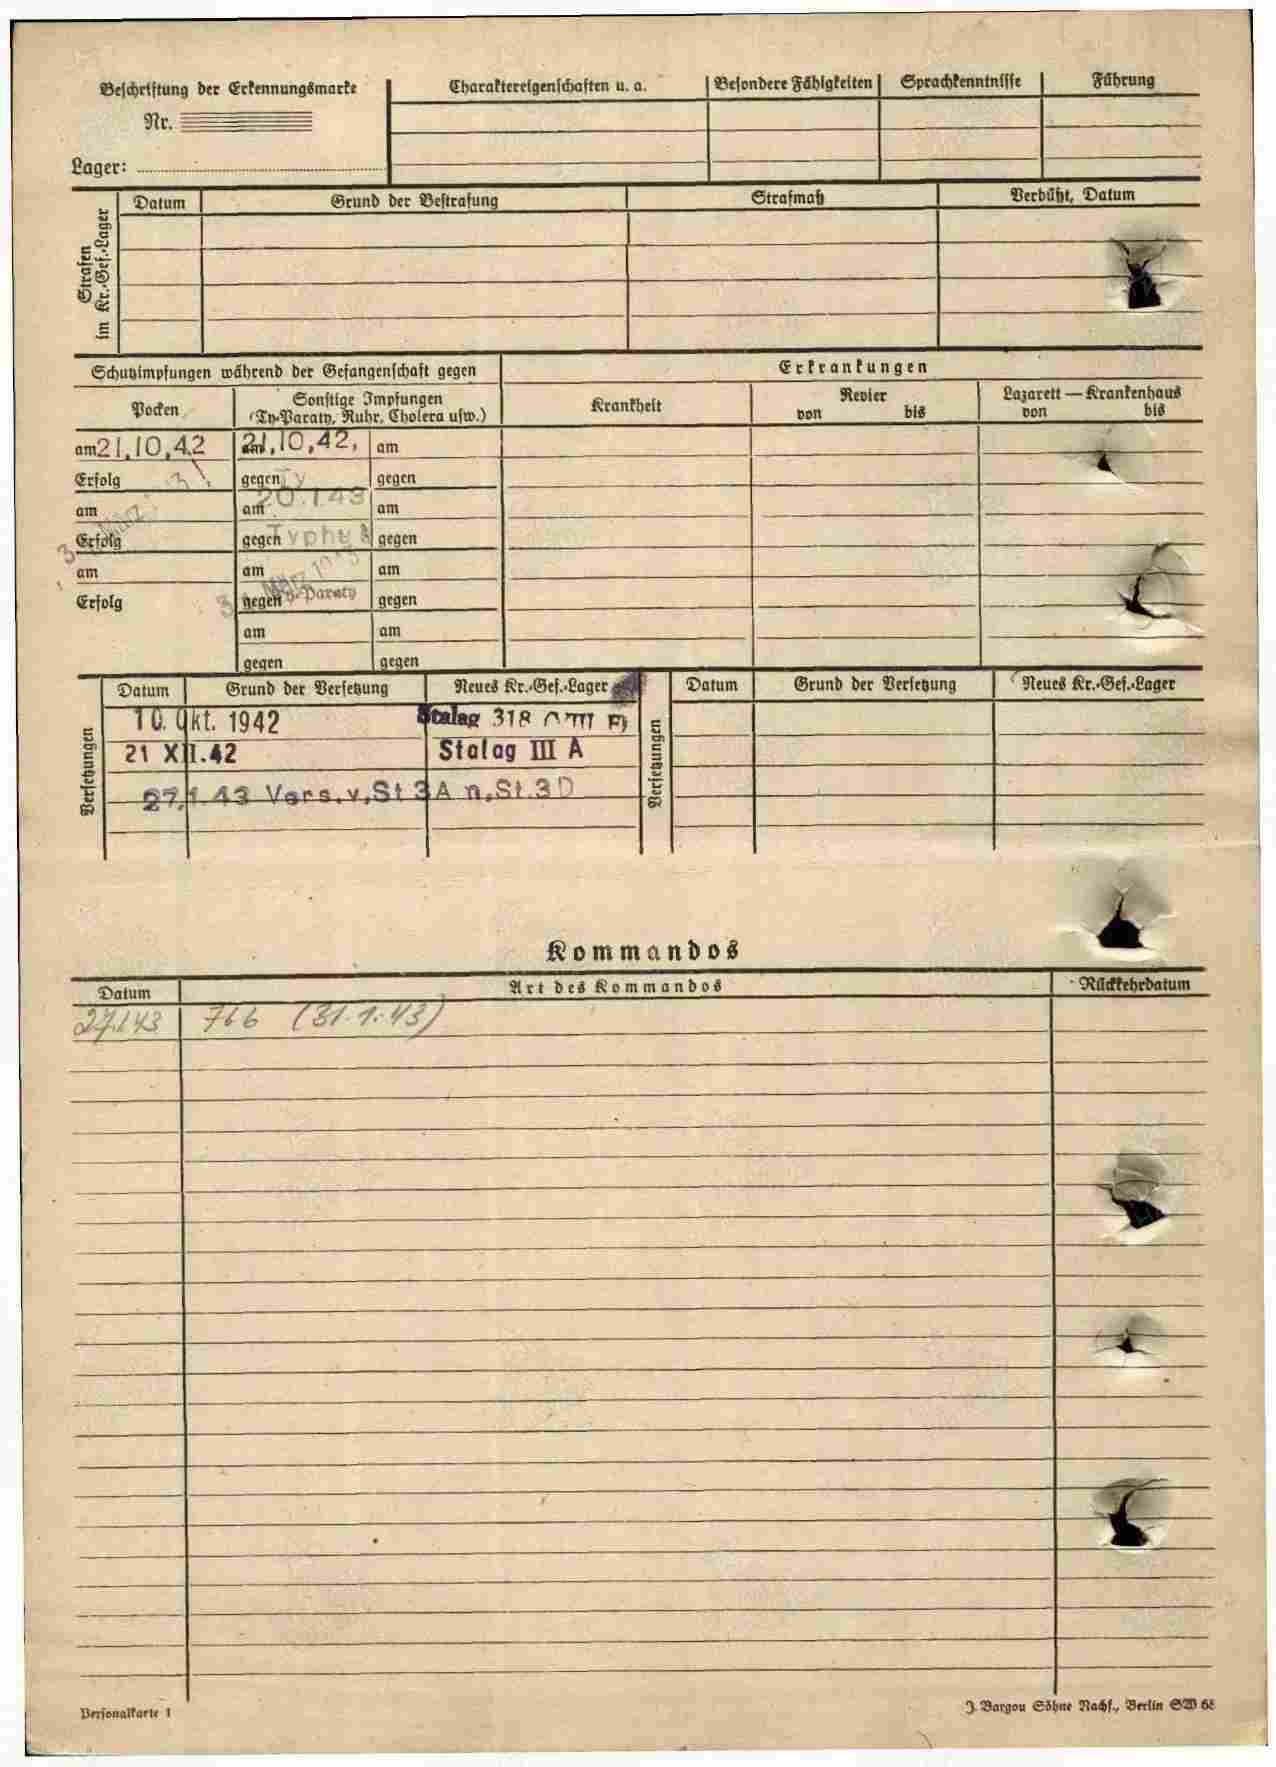 Beschriftung der Erkennungsmarke
Nr.
Lager:
Charaktereigenschaften u. a.
Besondere Fähigkeiten
Sprachkenntnisse
Führung
Strafen im Kr.-Gef.-Lager
Datum
Grund der Bestrafung
Strafmaß
Verbüßt, Datum
Schutzimpfungen während der Gefangenschaft gegen
Erkrankungen
Pocken
Sonstige Impfungen
(Ty-Paraty, Ruhr, Cholera usw.)
Krankheit
Revier
von bis
Lazarett — Krankenhaus
von bis
am 21.10.42 am 21.10.42. am
Erfolg gegen Ty gegen
am am 20.1.43 am
Erfolg gegen Typhus gegen
am am am
Erfolg gegen Paraty gegen
am am
gegen gegen
3. März
3. März 1943
Versetzungen
Datum Grund der Versetzung Neues Kr.-Gef.-Lager
10. Okt. 1942 Stalag 318 (VIII F)
21 XII.42 Stalag III A
27.1.43 Vers.v.St 3A n.St.3D
Versetzungen
Datum Grund der Versetzung Neues Kr.-Gef.-Lager
Kommandos
Datum Art des Kommandos Rückkehrdatum
27.1.43 766 (31.1.43)
Personalkarte 1
J. Bargou Söhne Nachf., Berlin SW 68